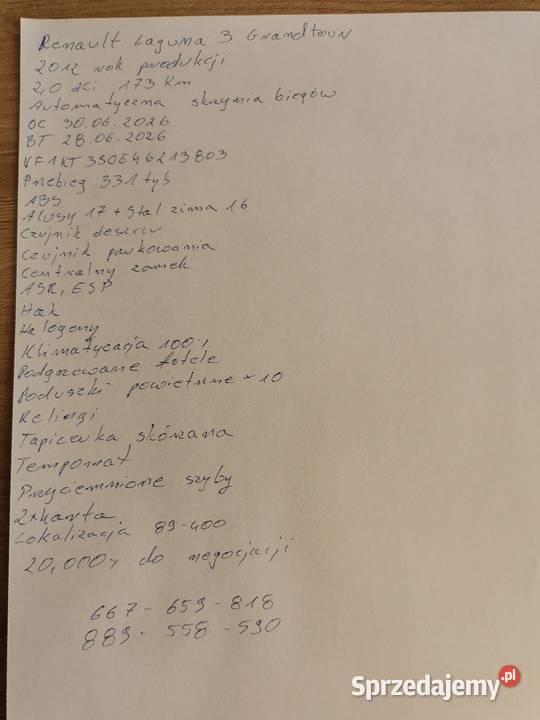 Renault Laguna 3 Grandtour
2012 rok produkcji
2,0 dCi 173 Km
Automatyczna skrzynia biegów
OC 30.06.2026
BT 28.06.2026
VF1KT3S0E46213803
Przebieg 331 tyś
ABS
Alusy 17 + Stal zima 16
Czujnik deszczu
Czujnik parkowania
Centralny zamek
ASR, ESP
Hak
Halogeny
Klimatyzacja 100%
Podgrzewane fotele
Poduszki powietrzne x 10
Relingi
Tapicerka skórzana
Tempomat
Przyciemnione szyby
2x karta
Lokalizacja 89-400
20,000,- do negocjacji
667-659-818
889-558-590
Sprzedajemy.pl